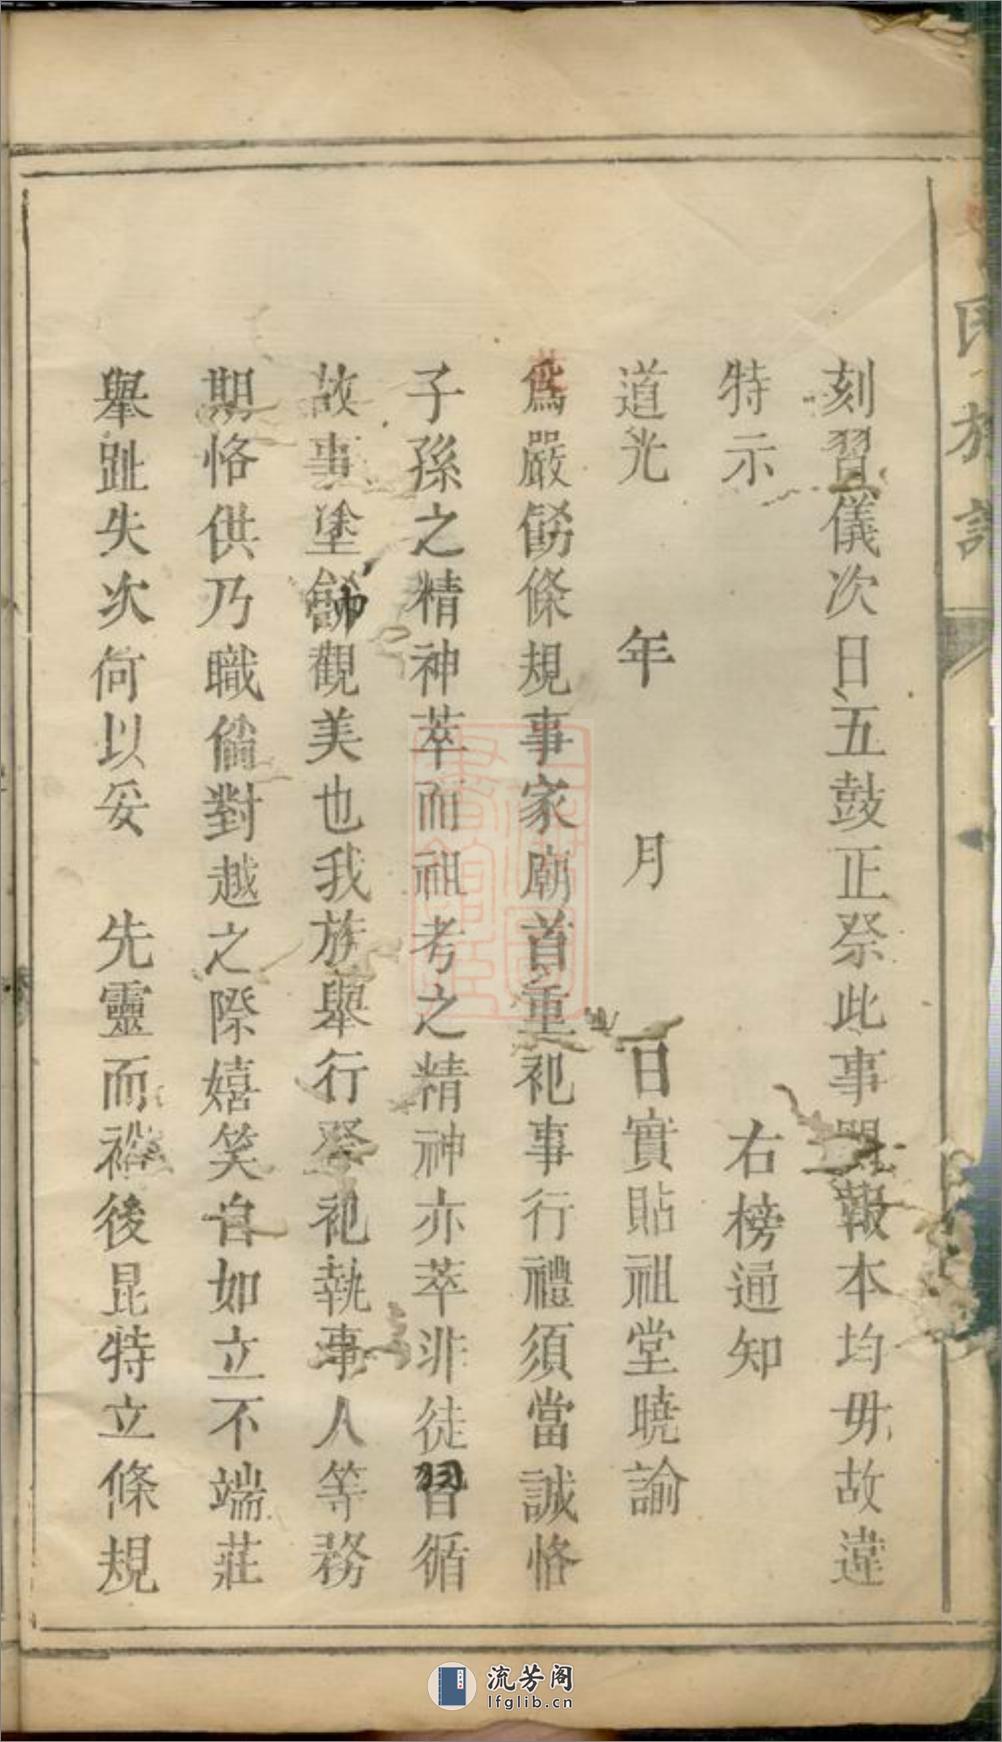 氏族譜
刻習儀次日五鼓正祭此事關報本均毋故違
特示 右榜通知
道光 年 月 日實貼祖堂曉諭
爲嚴飭條規事家廟首重祀事行禮須當誠恪
子孫之精神萃而祖考之精神亦萃非徒習循
故事塗飾觀美也我族舉行祭祀執事人等務
期恪供乃職倘對越之際嬉笑自如立不端莊
舉趾失次何以妥 先靈而裕後昆特立條規
流芳阁
lfglib.cn